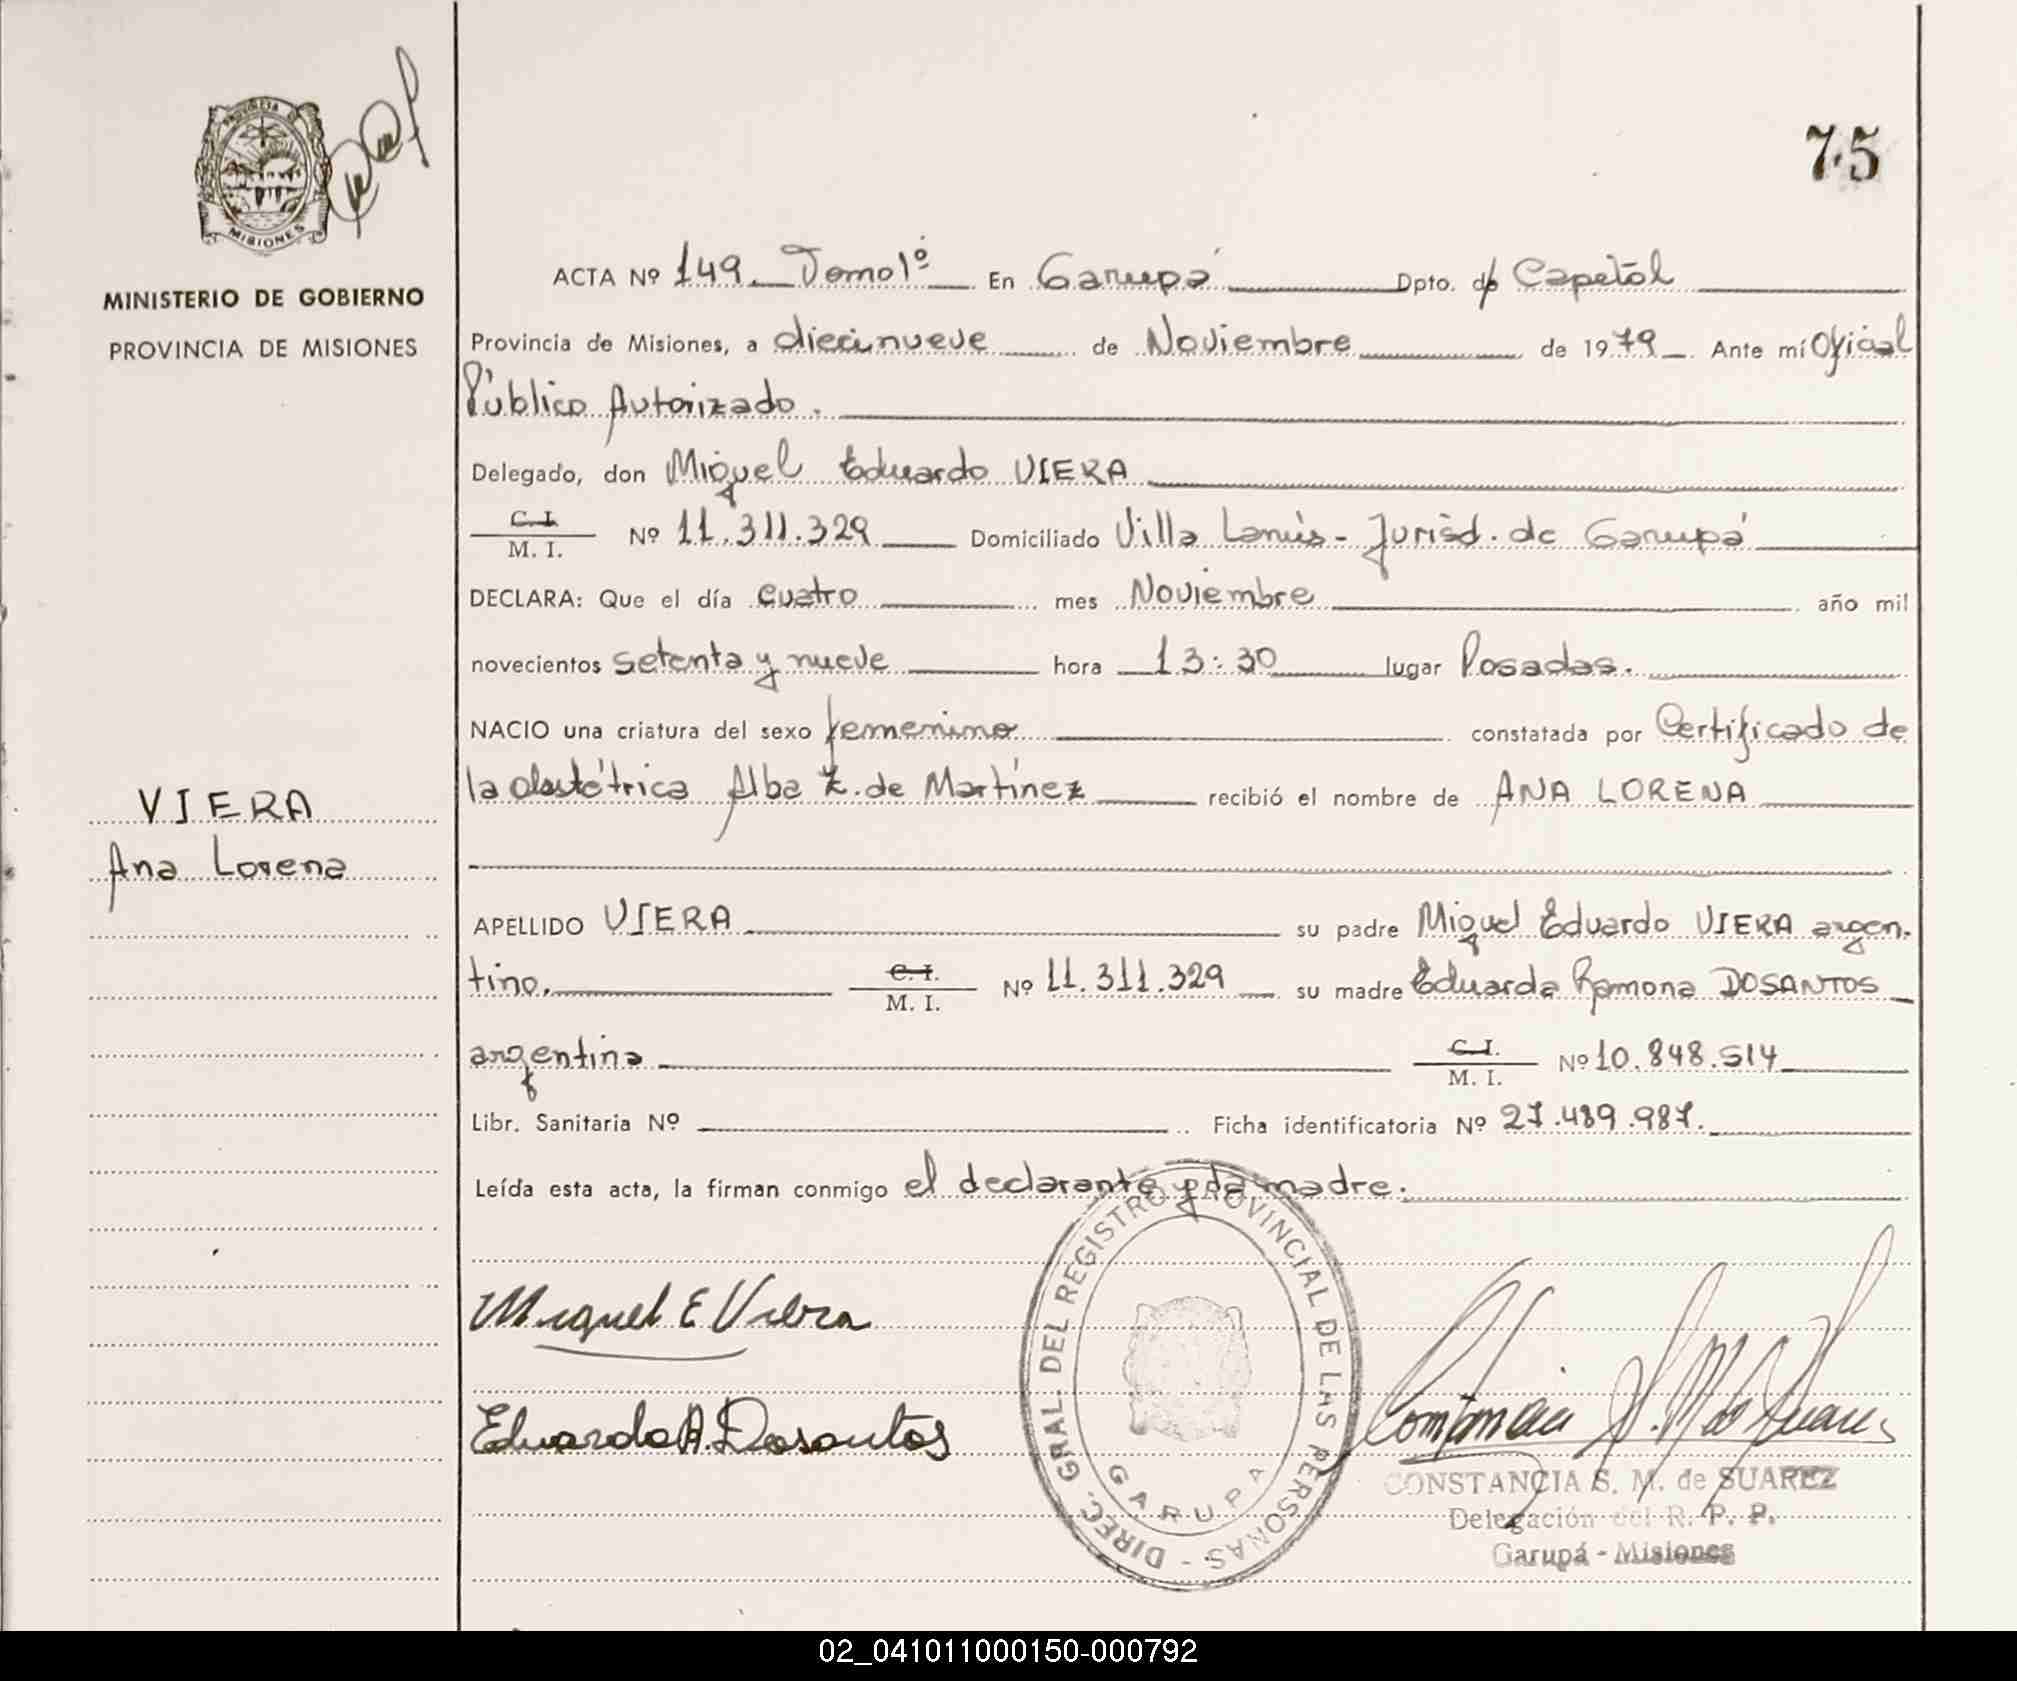 75
PROVINCIA
MISIONES
MINISTERIO DE GOBIERNO
PROVINCIA DE MISIONES
VIERA
Ana Lorena
ACTA Nº 149 Tomo 1º En Garupá Dpto. de Capital
Provincia de Misiones, a diecinueve de Noviembre de 1979 Ante mí Oficial
Público Autorizado.
Delegado, don Miguel Eduardo VIERA
C. I.
M. I. Nº 11.311.329 Domiciliado Villa Lanús - Jurisd. de Garupá
DECLARA: Que el día cuatro mes Noviembre año mil
novecientos setenta y nueve hora 13:30 lugar Posadas.
NACIO una criatura del sexo femenino constatada por Certificado de
la obstétrica Alba Z. de Martínez recibió el nombre de ANA LORENA
APELLIDO VIERA su padre Miguel Eduardo VIERA argen-
tino. C. I.
M. I. Nº 11.311.329 su madre Eduarda Ramona DOSANTOS
argentina C. I.
M. I. Nº 10.848.514
Libr. Sanitaria Nº Ficha identificatoria Nº 27.489.987.
Leída esta acta, la firman conmigo el declarante y la madre.
Miguel E Viera
Eduarda R. Dosantos
DIREC. GRAL. DEL REGISTRO PROVINCIAL DE LAS PERSONAS -
GARUPA
CONSTANCIA S. M. de SUAREZ
Delegación del R. P. P.
Garupá - Misiones
02_041011000150-000792